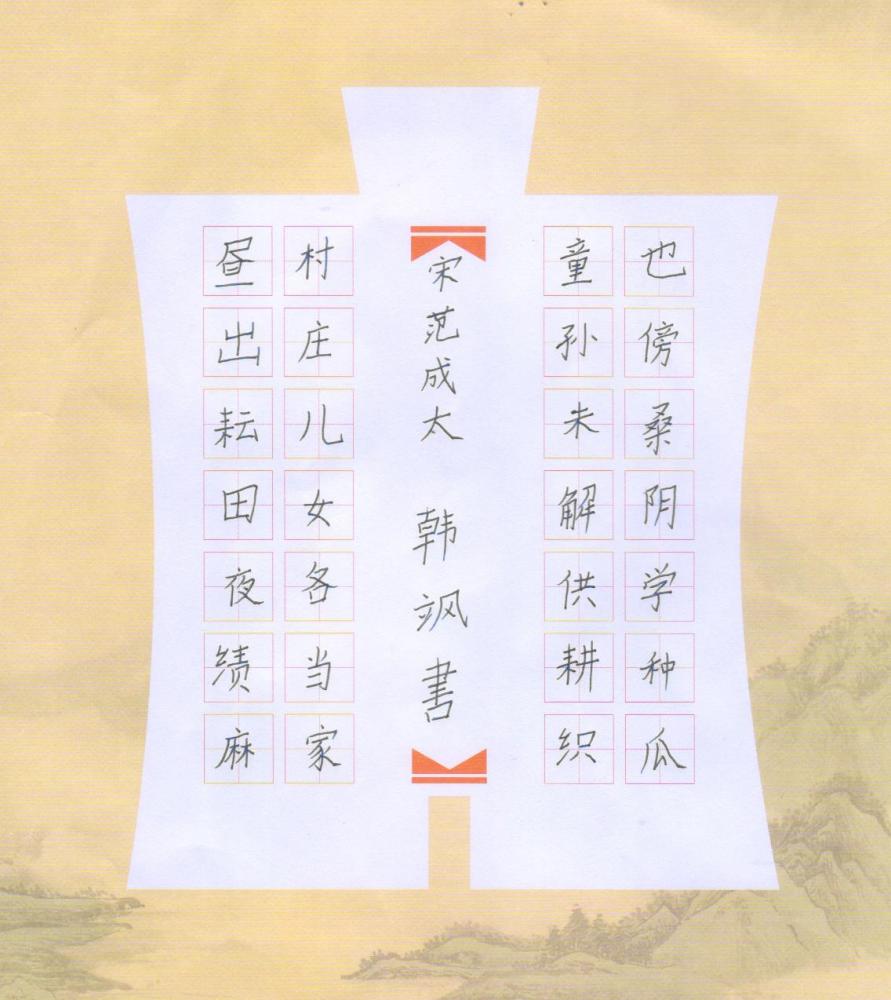 昼出耘田夜绩麻
村庄儿女各当家
宋范成太 韩飒書
童孙未解供耕织
也傍桑阴学种瓜